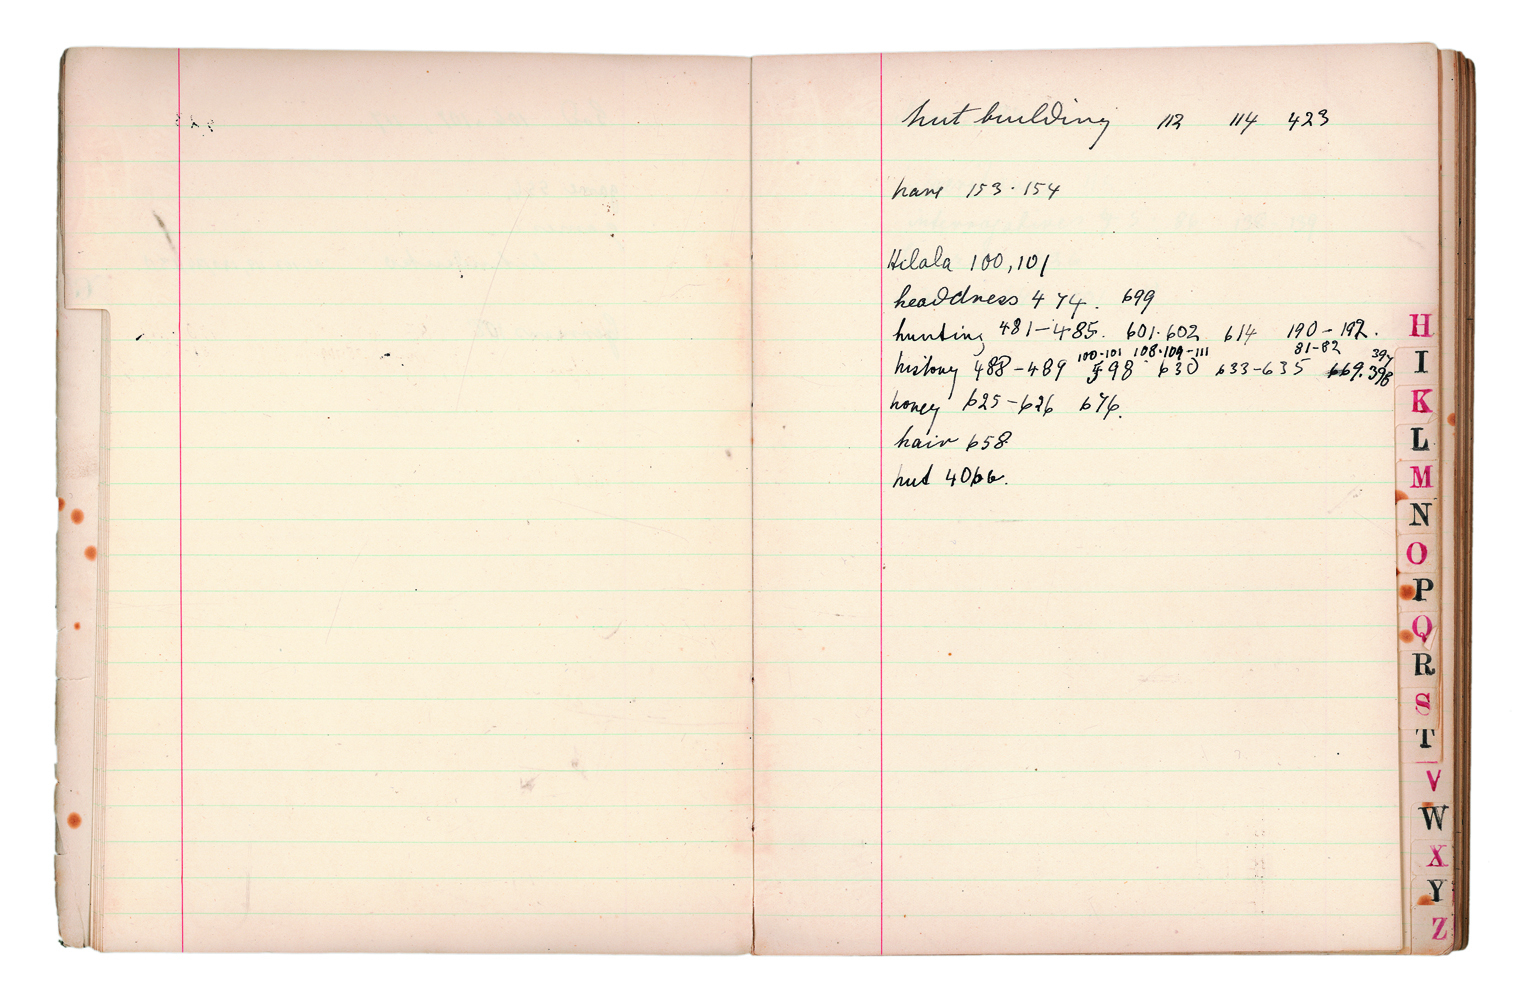 hut building 112 114 423
hare 153 · 154
Hilala 100, 101
headdress 474. 699
hunting 481-485. 601·602 614 190-192.
100-101 108·109-111 81-82 397
history 488-489 598 630 633-635 669. 398
honey 625-626 676.
hair 658
hut 4066.
H
I
K
L
M
N
O
P
Q
R
S
T
V
W
X
Y
Z